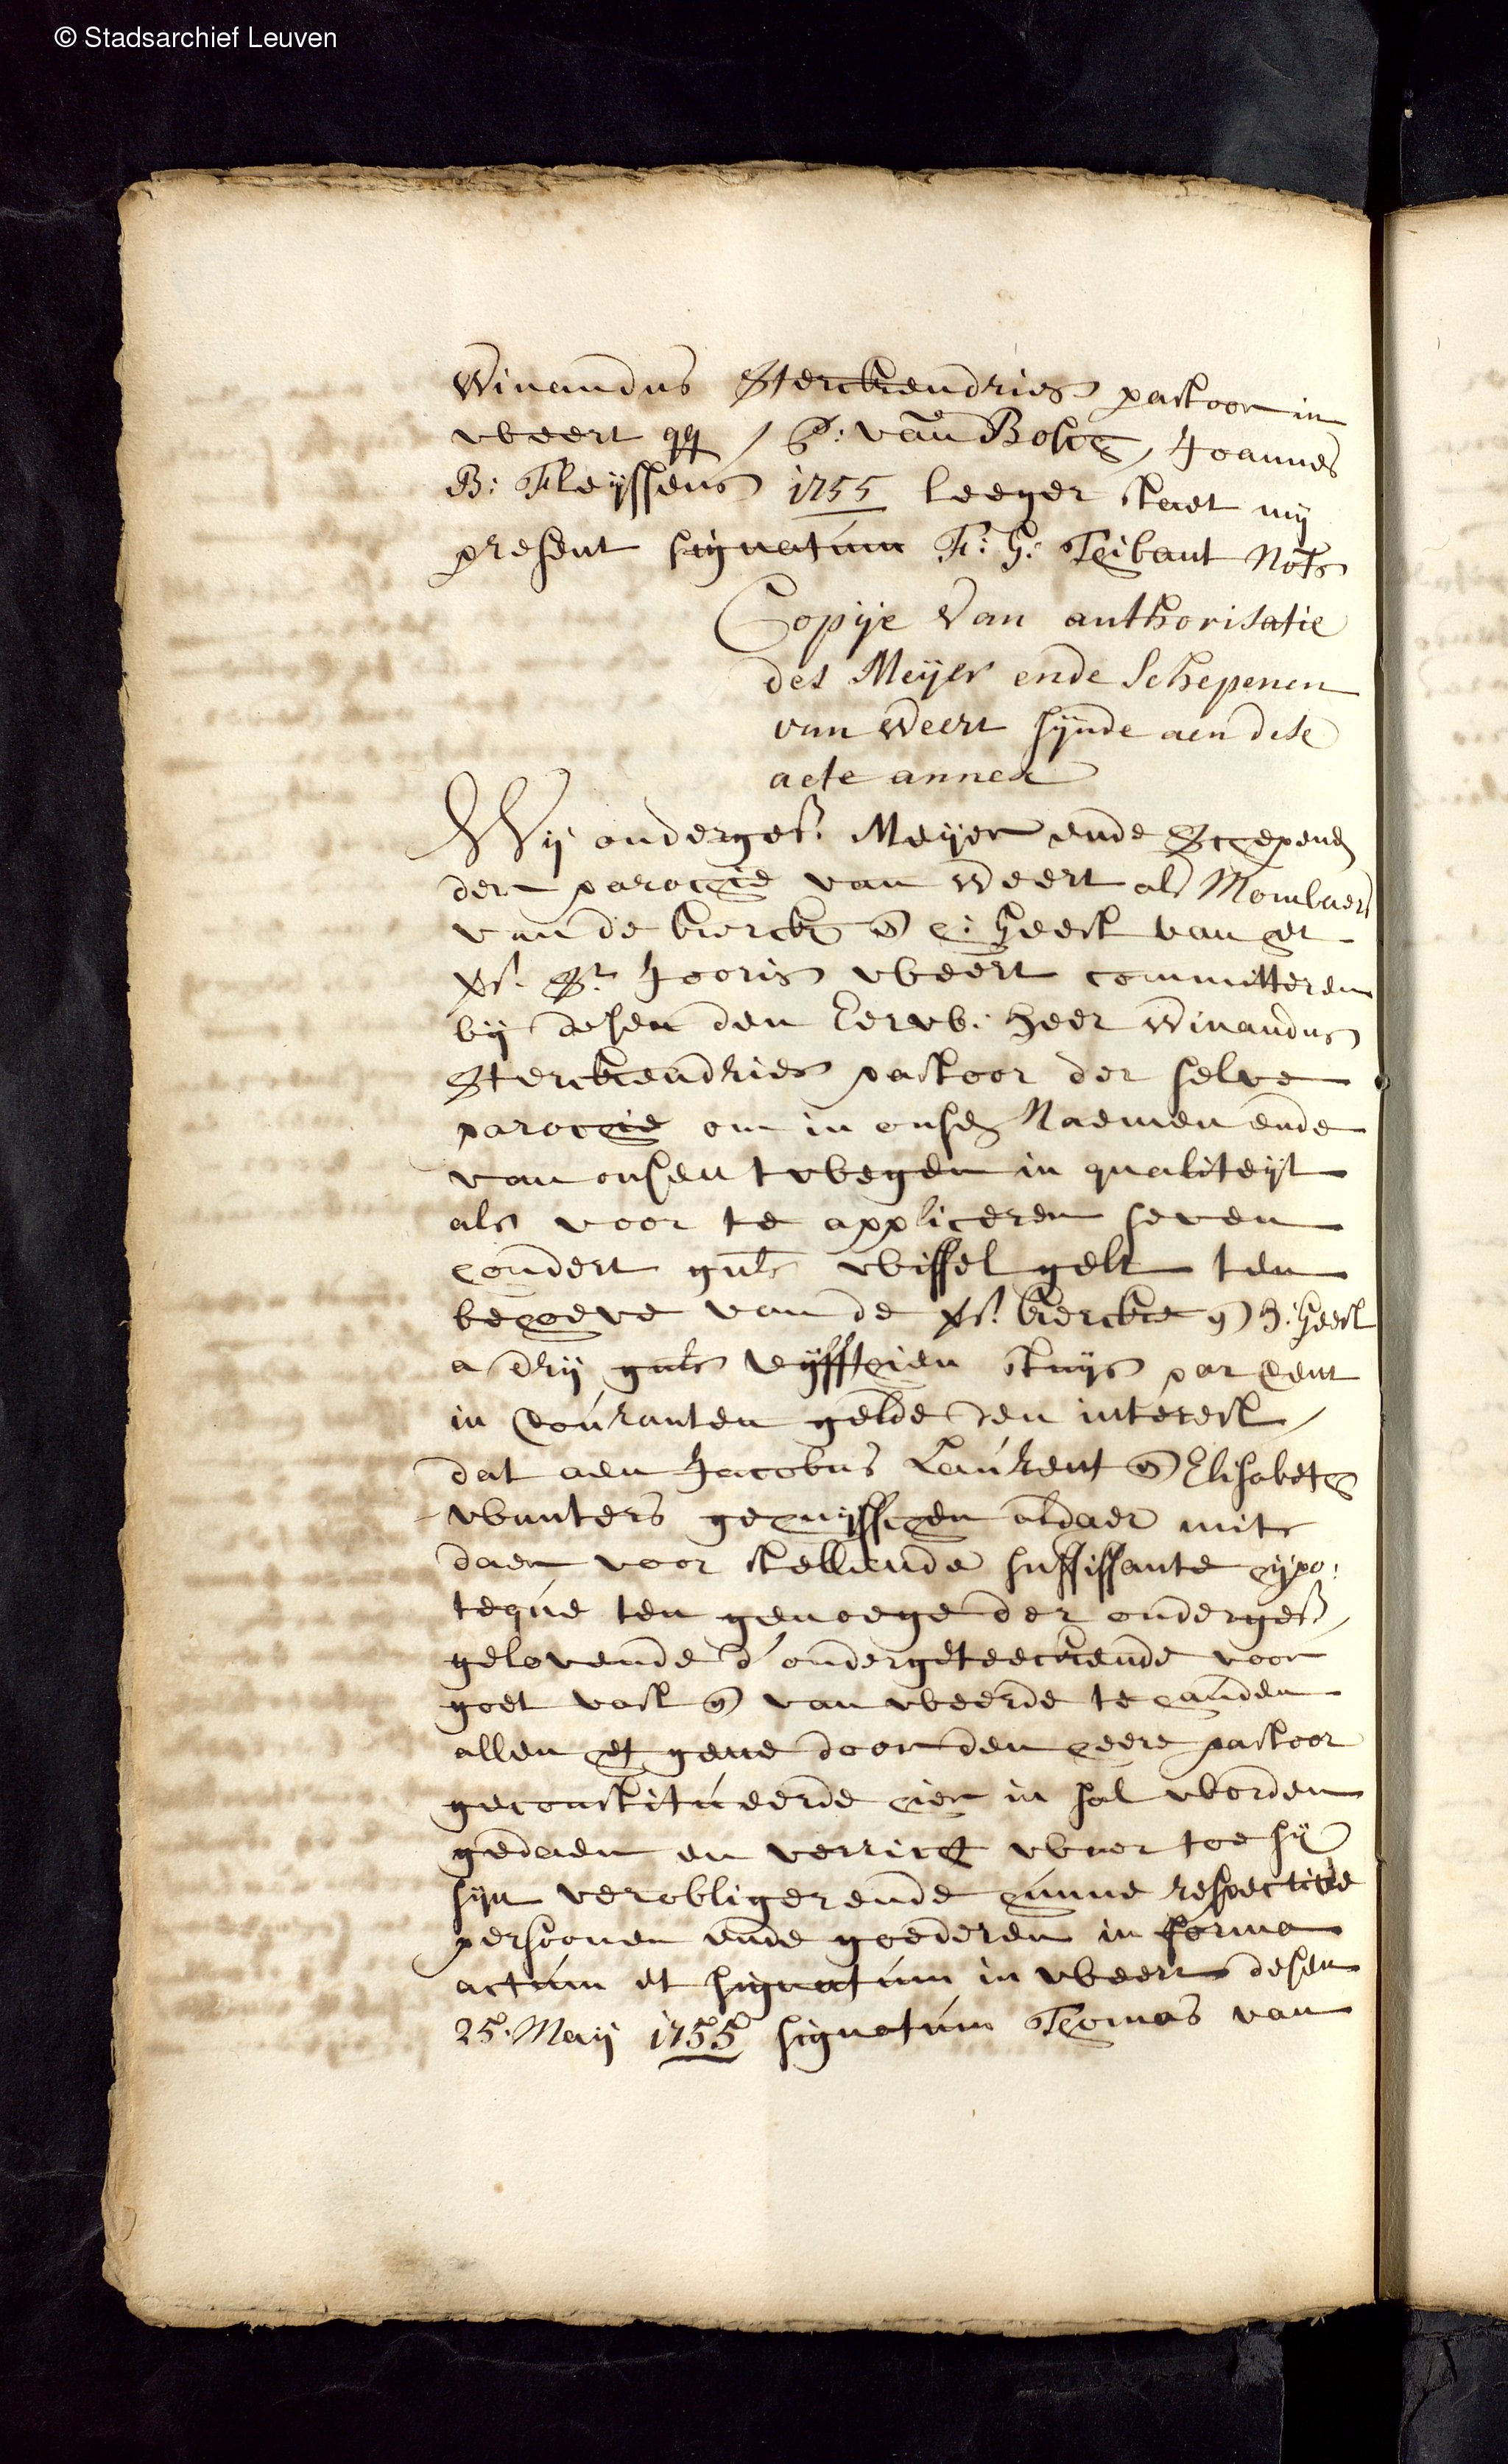 © Stadsarchief Leuven
Winandus Sterckendries pastoor in
weert qq / G: van Bosch, Joannes
B: Fleijssens 1755 leeger staet mij
present signatum F: H: Thibaut Nots
Copije van authorisatie
des Meijer ende Schepenen
van Weert sijnde aen dese
acte annex
Wij onderges. Meijer ende Schepenen
der parochie van Weert als Mombaers
van de kercke en h: Geest van het
vs. St Jooris weert committeren
bij desen den Eerw. heer Winandus
Sterckendries pastoor der selve
parochie om in onsen Naemen ende
van onsent wegen in qualiteijt
als voor te appliceren seven
hondert guls wissel gelt ten
behoeve van de vs. kercke en H. Geest
a drij guls vijffthien stuijs par cent
in couranten gelde den interest,
dat aen Jacobus Laurent en Elisabeth
Wauters gehuijsschen aldaer mits
daer voor stellende suffissante hijpo:
teque ten genoege der onderges,
gelovende d'ondergeteeckende voor
goet vast en van weerde te handen
allen het gene door den heere pastoor
geconstitueerde hier in sal worden
gedaen en verricht waer toe sij
sijn verobligerende hunne respective
persoonen ende goederen in forma
actum et signatum in weert desen
25. Maij 1755 signatum Thomas van